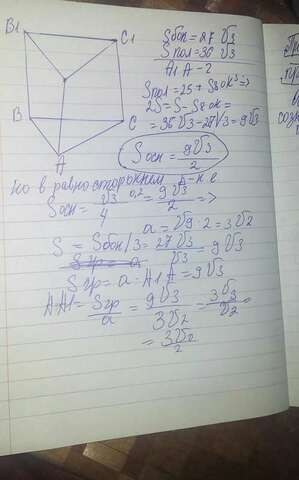 B1
C1
B
C
A
Sбок = 27√3
Sпол = 36√3
A1A - ?
Sпол = 2S + Sбок =>
2S = S - Sбок =
= 36√3 - 27√3 = 9√3
Sосн = 9√3/2
в равностороннем
Sосн = √3/4 a² = 9√3/2 =>
a = √9·2 = 3√2
S = Sбок/3 = 27√3/√3 = 9√3
Sгр = a
Sгр = a · A1A = 9√3
AA1 = Sгр/a = 9√3/3√2 = 3√3/√2 =
= 3√2/2